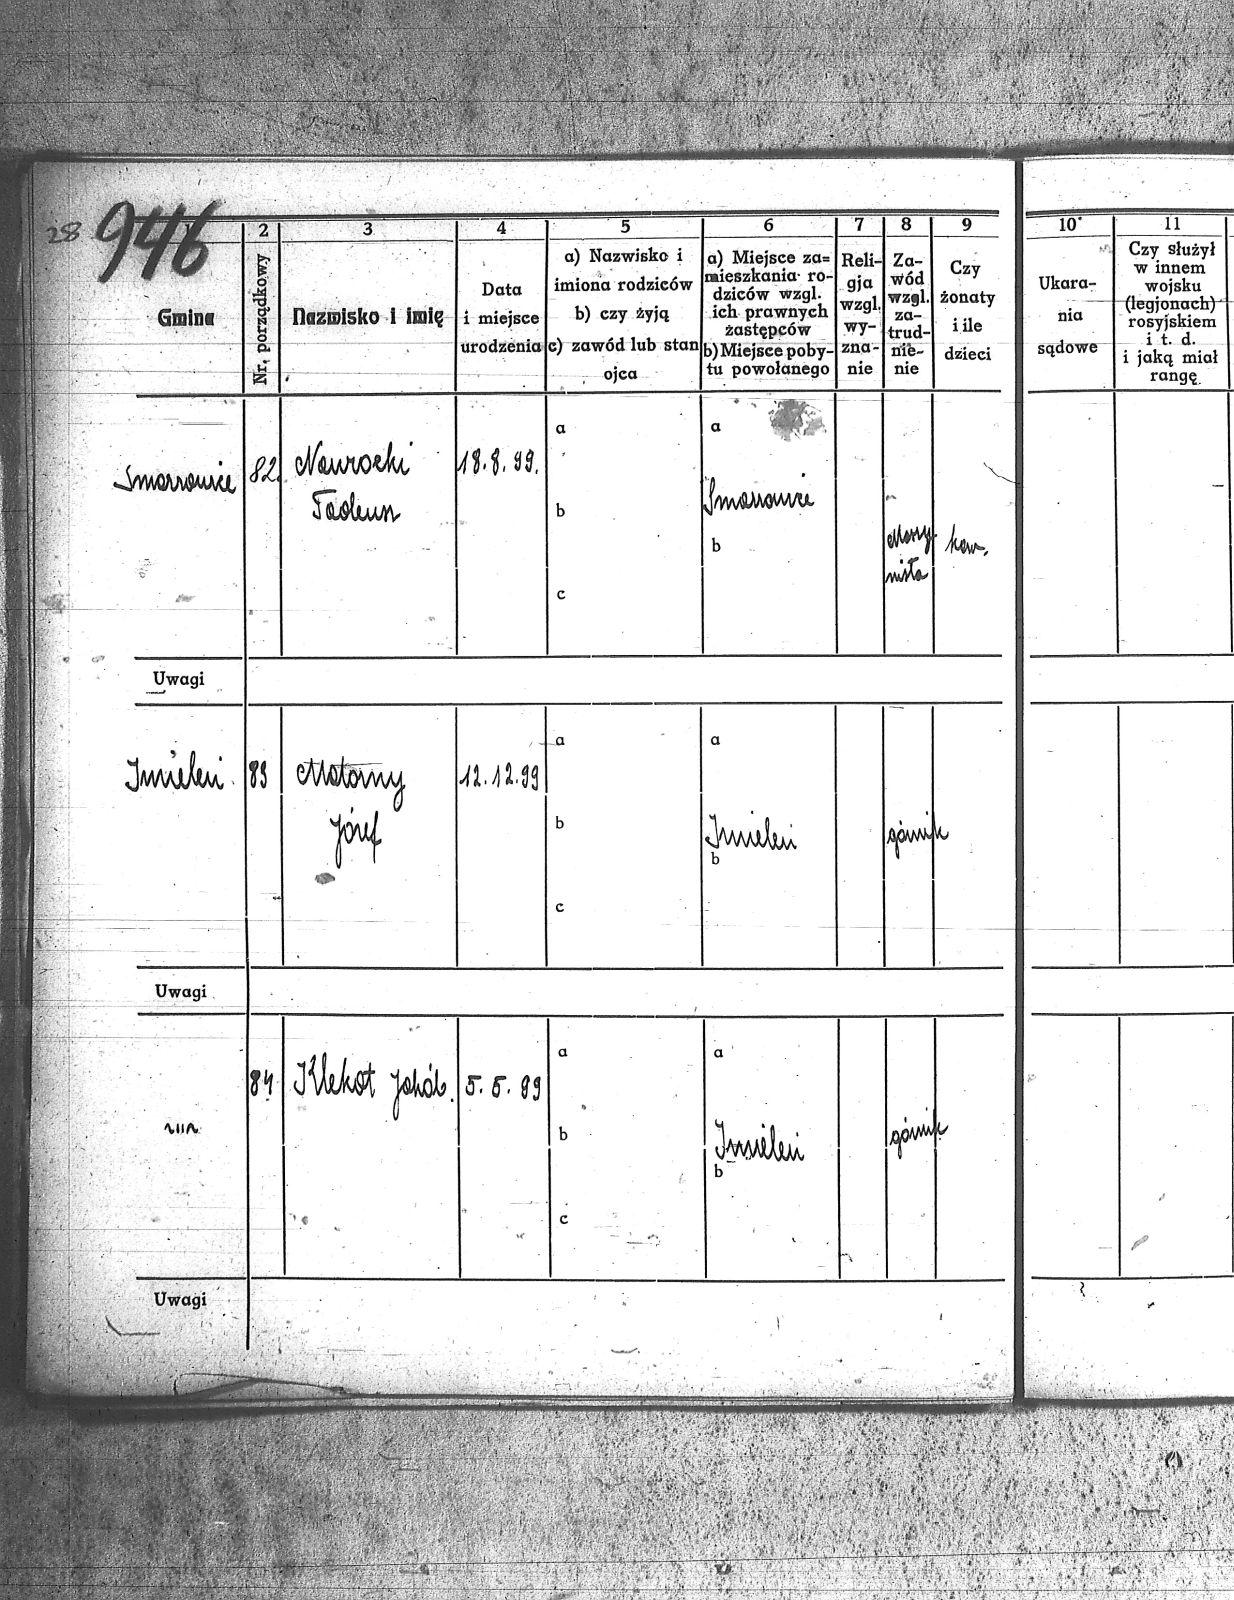 28 946
1 2 3 4 5 6 7 8 9 10 11
Gmina
Nr. porządkowy
Nazwisko i imię
Data
i miejsce
urodzenia
a) Nazwisko i
imiona rodziców
b) czy żyją
c) zawód lub stan
ojca
a) Miejsce za=
mieszkania ro-
dziców wzgl.
ich prawnych
żastępców
b) Miejsce poby-
tu powołanego
Reli-
gja
wzgl.
wy-
zna-
nie
Za-
wód
wzgl.
za-
trud-
nie-
nie
Czy
żonaty
i ile
dzieci
Ukara-
nia
sądowe
Czy służył
w innem
wojsku
(legjonach)
rosyjskiem
i t. d.
i jaką miał
rangę
Smarzowice 82. Nawrocki 18.8.99.
Tadeusz
a
b
c
a
Smarzowice
b
Maszy
nista
kaw.
Uwagi
Imieleń 83 Matorny 12.12.99
Józef
a
b
c
a
Imieleń
b
górnik
Uwagi
84 Klekot Jakób. 5.5.99
a
b
c
a
Imieleń
b
górnik
Uwagi